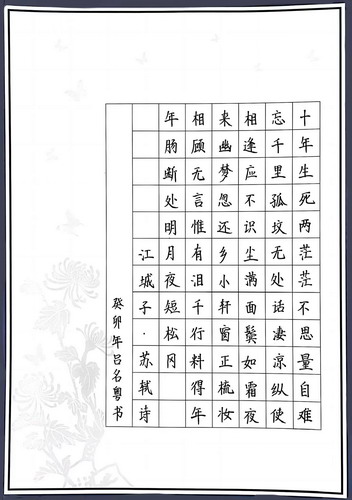 十年生死两茫茫不思量自难
忘千里孤坟无处话凄凉纵使
相逢应不识尘满面鬓如霜夜
来幽梦忽还乡小轩窗正梳妆
相顾无言惟有泪千行料得年
年肠断处明月夜短松冈
江城子·苏轼诗
癸卯年吕名粤书